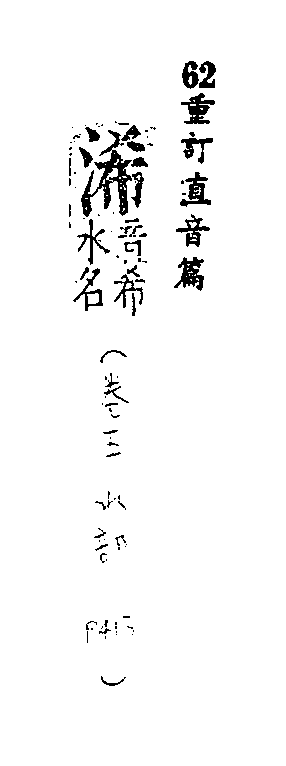 62重訂直音篇
浠音希水名
(卷三 水部 P415)